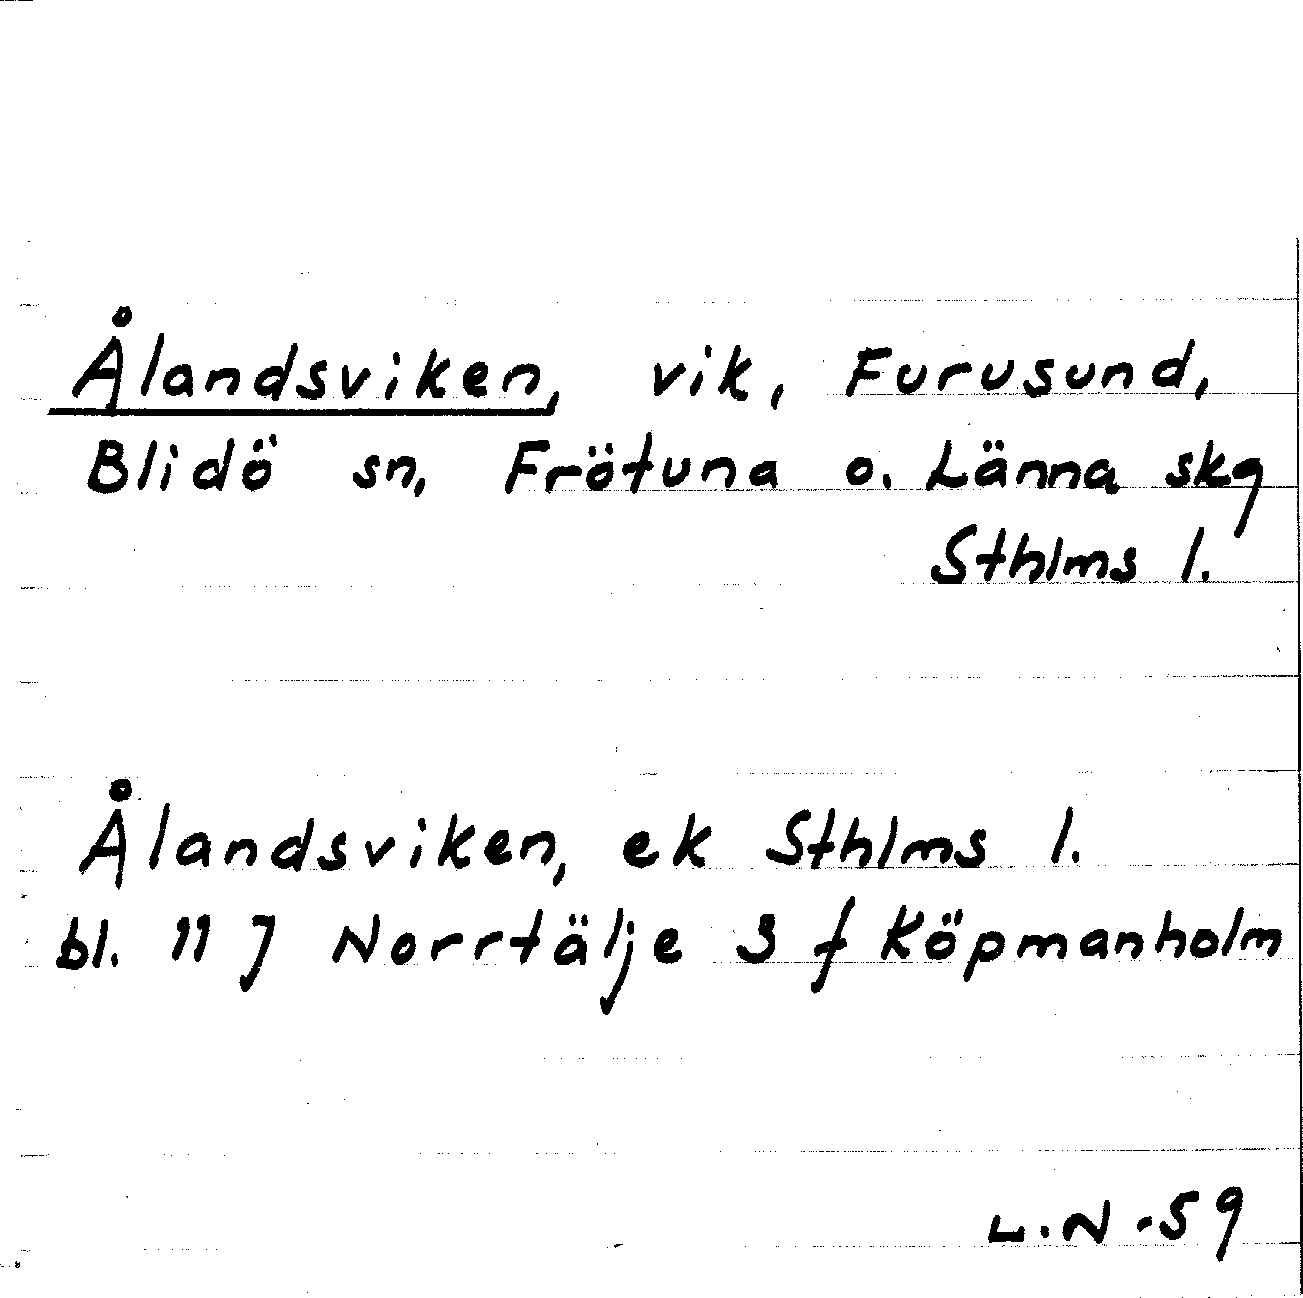 Ålandsviken, vik, Furusund,
Blidö sn, Frötuna o. Länna skg
Sthlms l.
Ålandsviken, ek Sthlms l.
bl. 11 J Norrtälje 3 f Köpmanholm
L.N -59